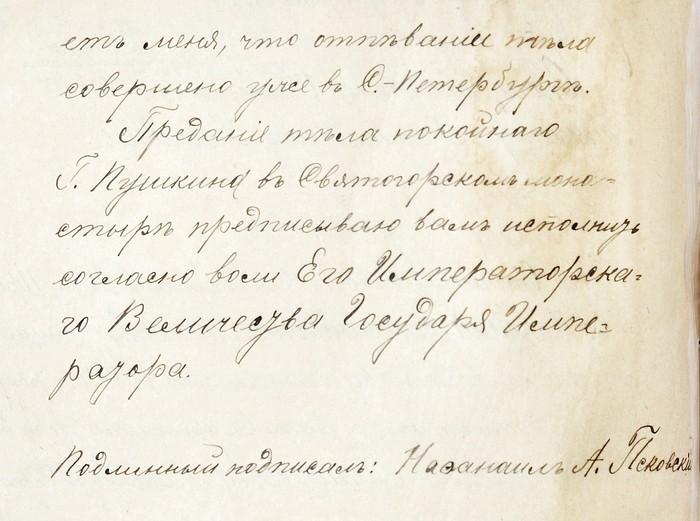 етъ меня, что отпѣваніе тѣла
совершено уже въ С.-Петербургѣ.
Преданіе тѣла покойнаго
Г. Пушкина въ Святогорскомъ мона=
стырѣ предписываю вамъ исполнить
согласно воли Его Императорска=
го Величества Государя Импе=
ратора.
Подлинный подписалъ: Наѳанаилъ А. Псковскій